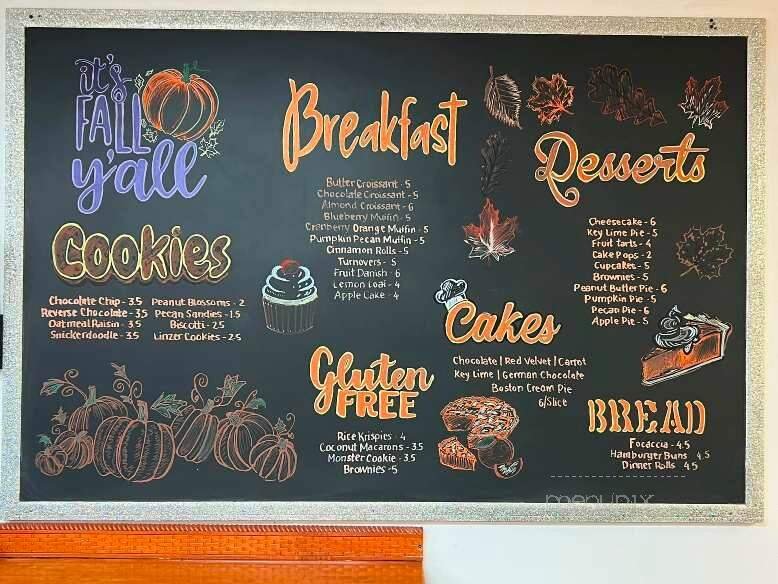 it's
FALL
y'all
Breakfast
Butter Croissant - 5
Chocolate Croissant - 5
Almond Croissant - 6
Blueberry Muffin - 5
Cranberry Orange Muffin - 5
Pumpkin Pecan Muffin - 5
Cinnamon Rolls - 5
Turnovers - 5
Fruit Danish - 6
Lemon Loaf - 4
Apple Cake - 4
Desserts
Cheesecake - 6
Key Lime Pie - 5
Fruit tarts - 4
Cake Pops - 2
Cupcakes - 5
Brownies - 5
Peanut Butter Pie - 6
Pumpkin Pie - 5
Pecan Pie - 6
Apple Pie - 5
Cookies
Chocolate Chip - 3.5 Peanut Blossoms - 2
Reverse Chocolate - 3.5 Pecan Sandies - 1.5
Oatmeal Raisin - 3.5 Biscotti - 2.5
Snickerdoodle - 3.5 Linzer Cookies - 2.5
Cakes
Chocolate | Red Velvet | Carrot
Key Lime | German Chocolate
Boston Cream Pie
6/Slice
Gluten
FREE
Rice Krispies - 4
Coconut Macarons - 3.5
Monster Cookie - 3.5
Brownies - 5
BREAD
Focaccia - 4.5
Hamburger Buns 4.5
Dinner Rolls 4.5
menupix